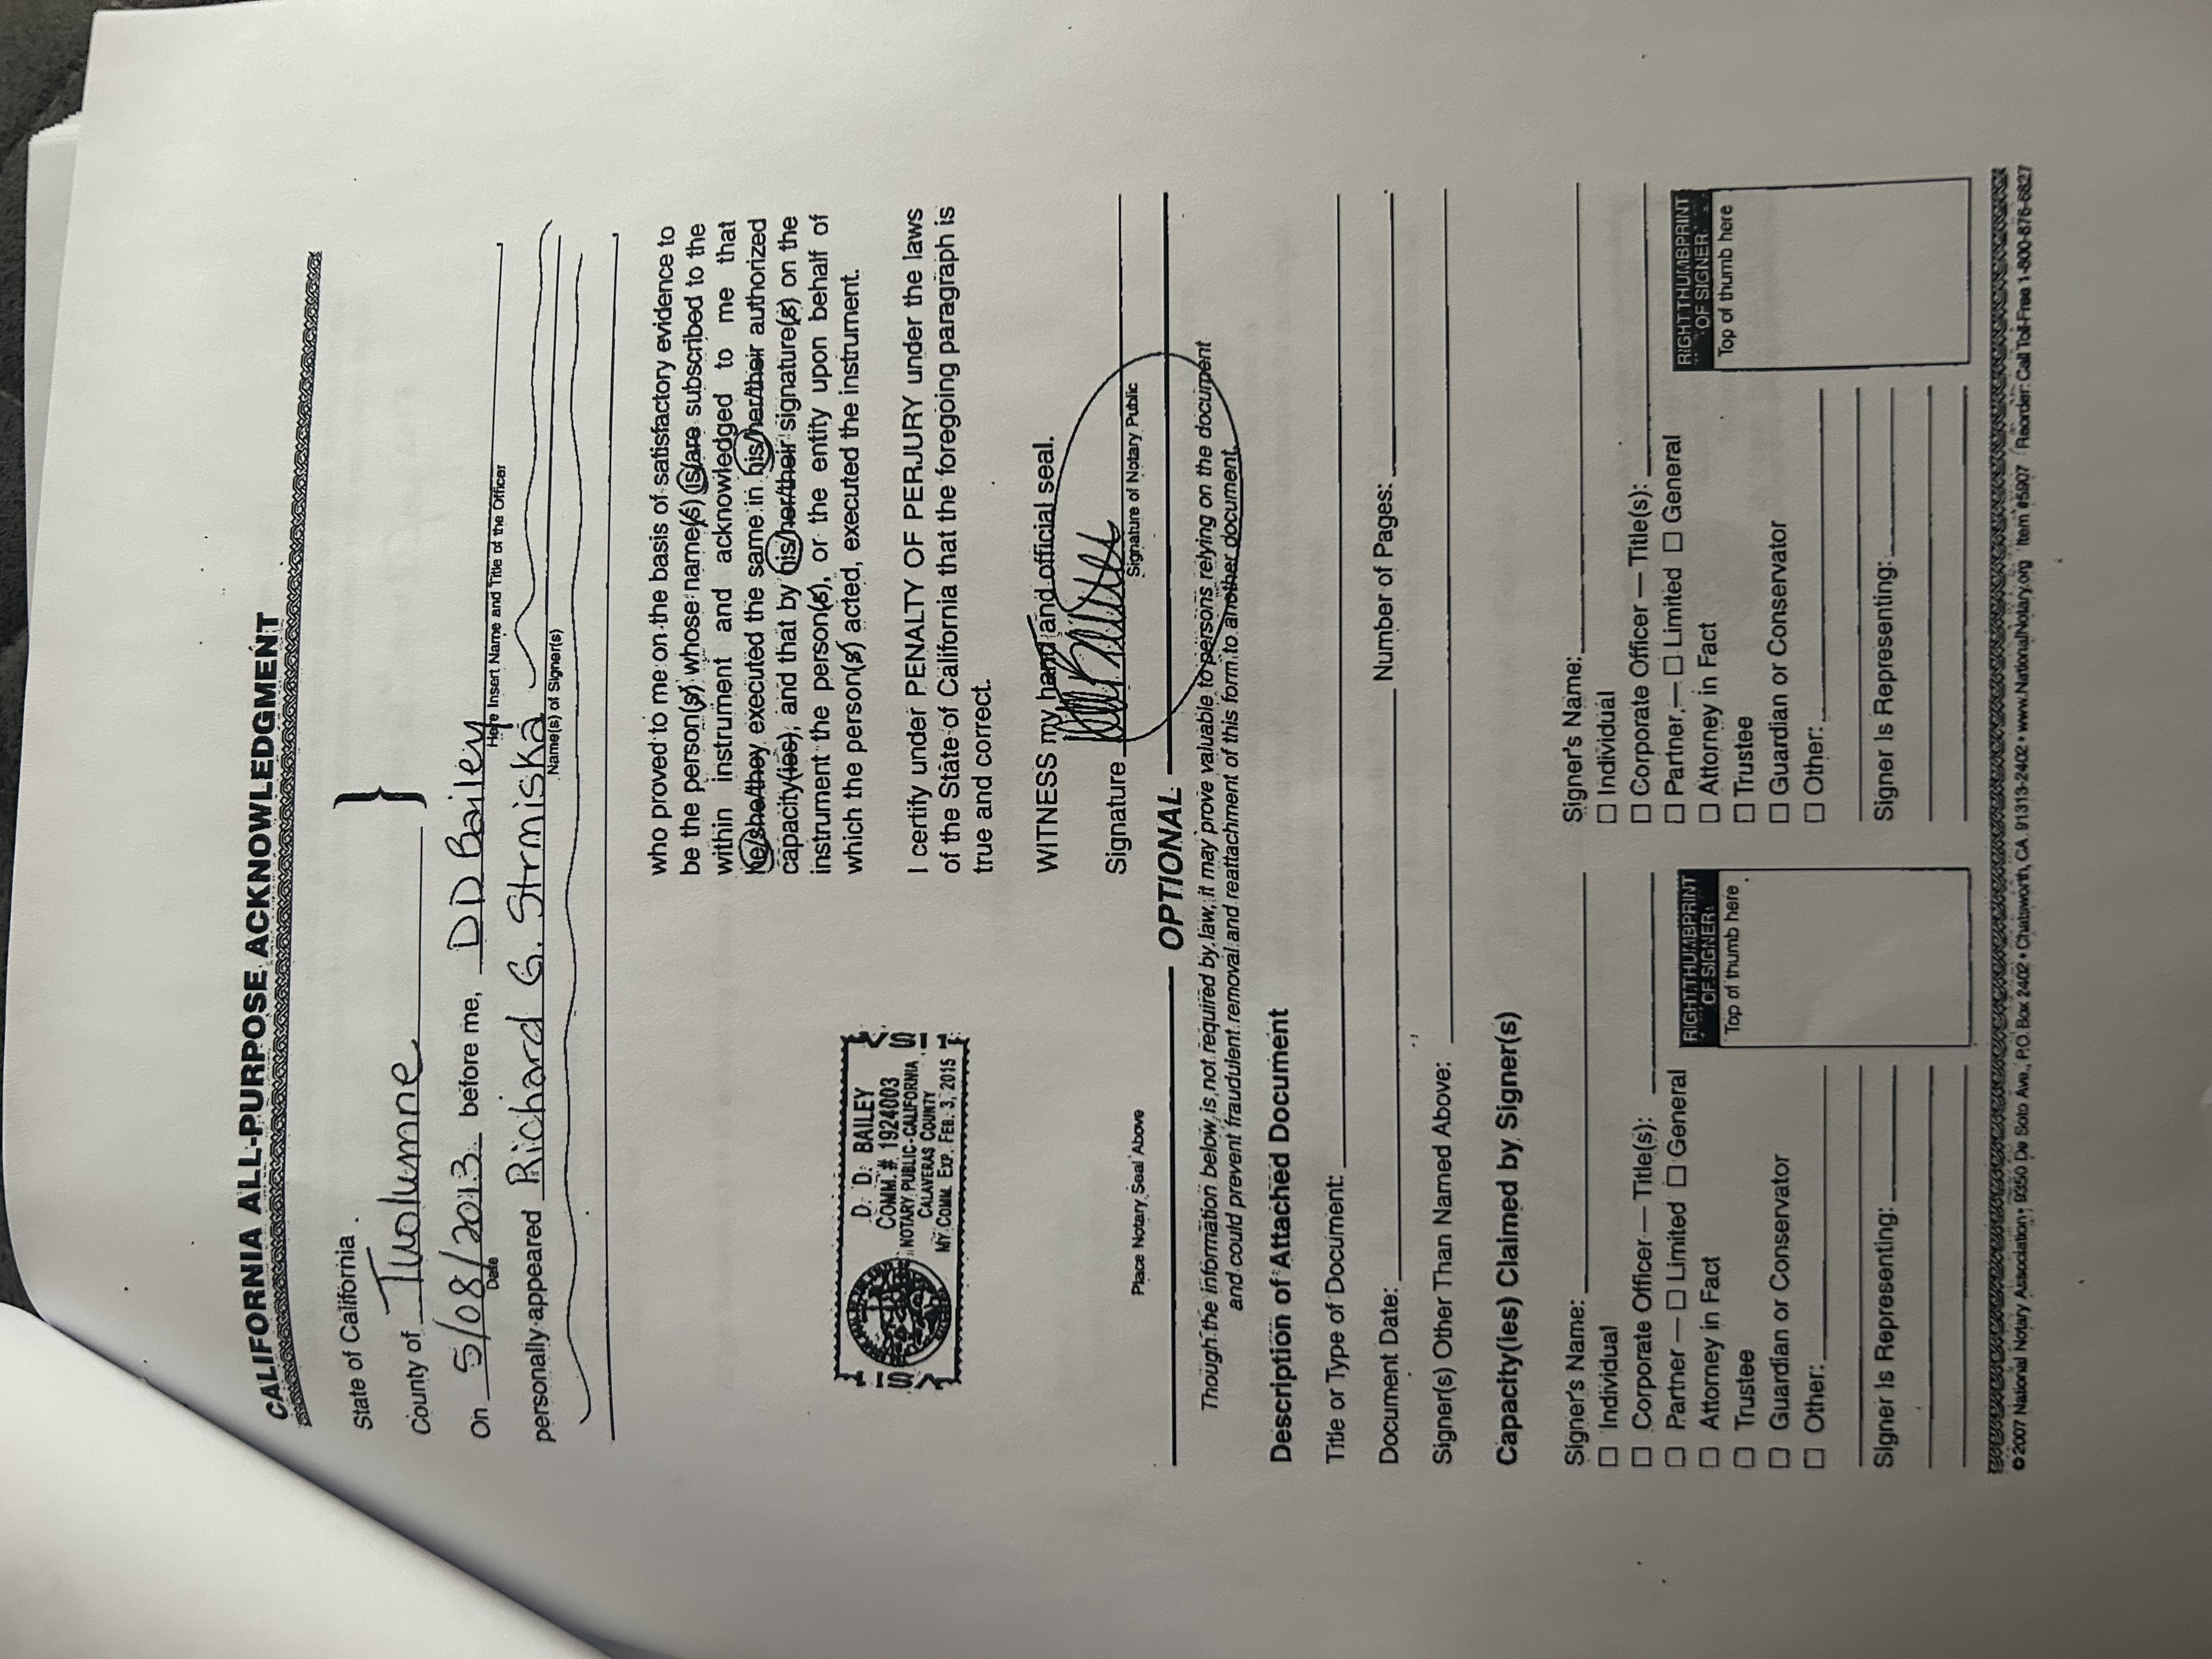 CALIFORNIA ALL-PURPOSE ACKNOWLEDGMENT
State of California
County of Tuolumne
On 5/08/2013 before me, DD Bailey
Date
Here Insert Name and Title of the Officer
personally appeared Richard G. Strmiska
Name(s) of Signer(s)
who proved to me on the basis of satisfactory evidence to
be the person(s) whose name(s) is/are subscribed to the
within instrument and acknowledged to me that
he/she/they executed the same in his/her/their authorized
capacity(ies), and that by his/her/their signature(s) on the
instrument the person(s), or the entity upon behalf of
which the person(s) acted, executed the instrument.
D. D. BAILEY
COMM. # 1924003
NOTARY PUBLIC-CALIFORNIA
CALAVERAS COUNTY
MY COMM. EXP. FEB. 3, 2015
I certify under PENALTY OF PERJURY under the laws
of the State of California that the foregoing paragraph is
true and correct.
WITNESS my hand and official seal.
Signature
Signature of Notary Public
Place Notary Seal Above
OPTIONAL
Though the information below is not required by law, it may prove valuable to persons relying on the document
and could prevent fraudulent removal and reattachment of this form to another document.
Description of Attached Document
Title or Type of Document:
Document Date: Number of Pages:
Signer(s) Other Than Named Above:
Capacity(ies) Claimed by Signer(s)
Signer's Name:
☐ Individual
☐ Corporate Officer — Title(s):
☐ Partner — ☐ Limited ☐ General
☐ Attorney in Fact
☐ Trustee
☐ Guardian or Conservator
☐ Other:
Signer Is Representing:
RIGHT THUMBPRINT
OF SIGNER
Top of thumb here
Signer's Name:
☐ Individual
☐ Corporate Officer — Title(s):
☐ Partner — ☐ Limited ☐ General
☐ Attorney in Fact
☐ Trustee
☐ Guardian or Conservator
☐ Other:
Signer Is Representing:
RIGHT THUMBPRINT
OF SIGNER
Top of thumb here
© 2007 National Notary Association • 9350 De Soto Ave., P.O. Box 2402 • Chatsworth, CA 91313-2402 • www.NationalNotary.org Item #5907 Reorder: Call Toll-Free 1-800-876-6827